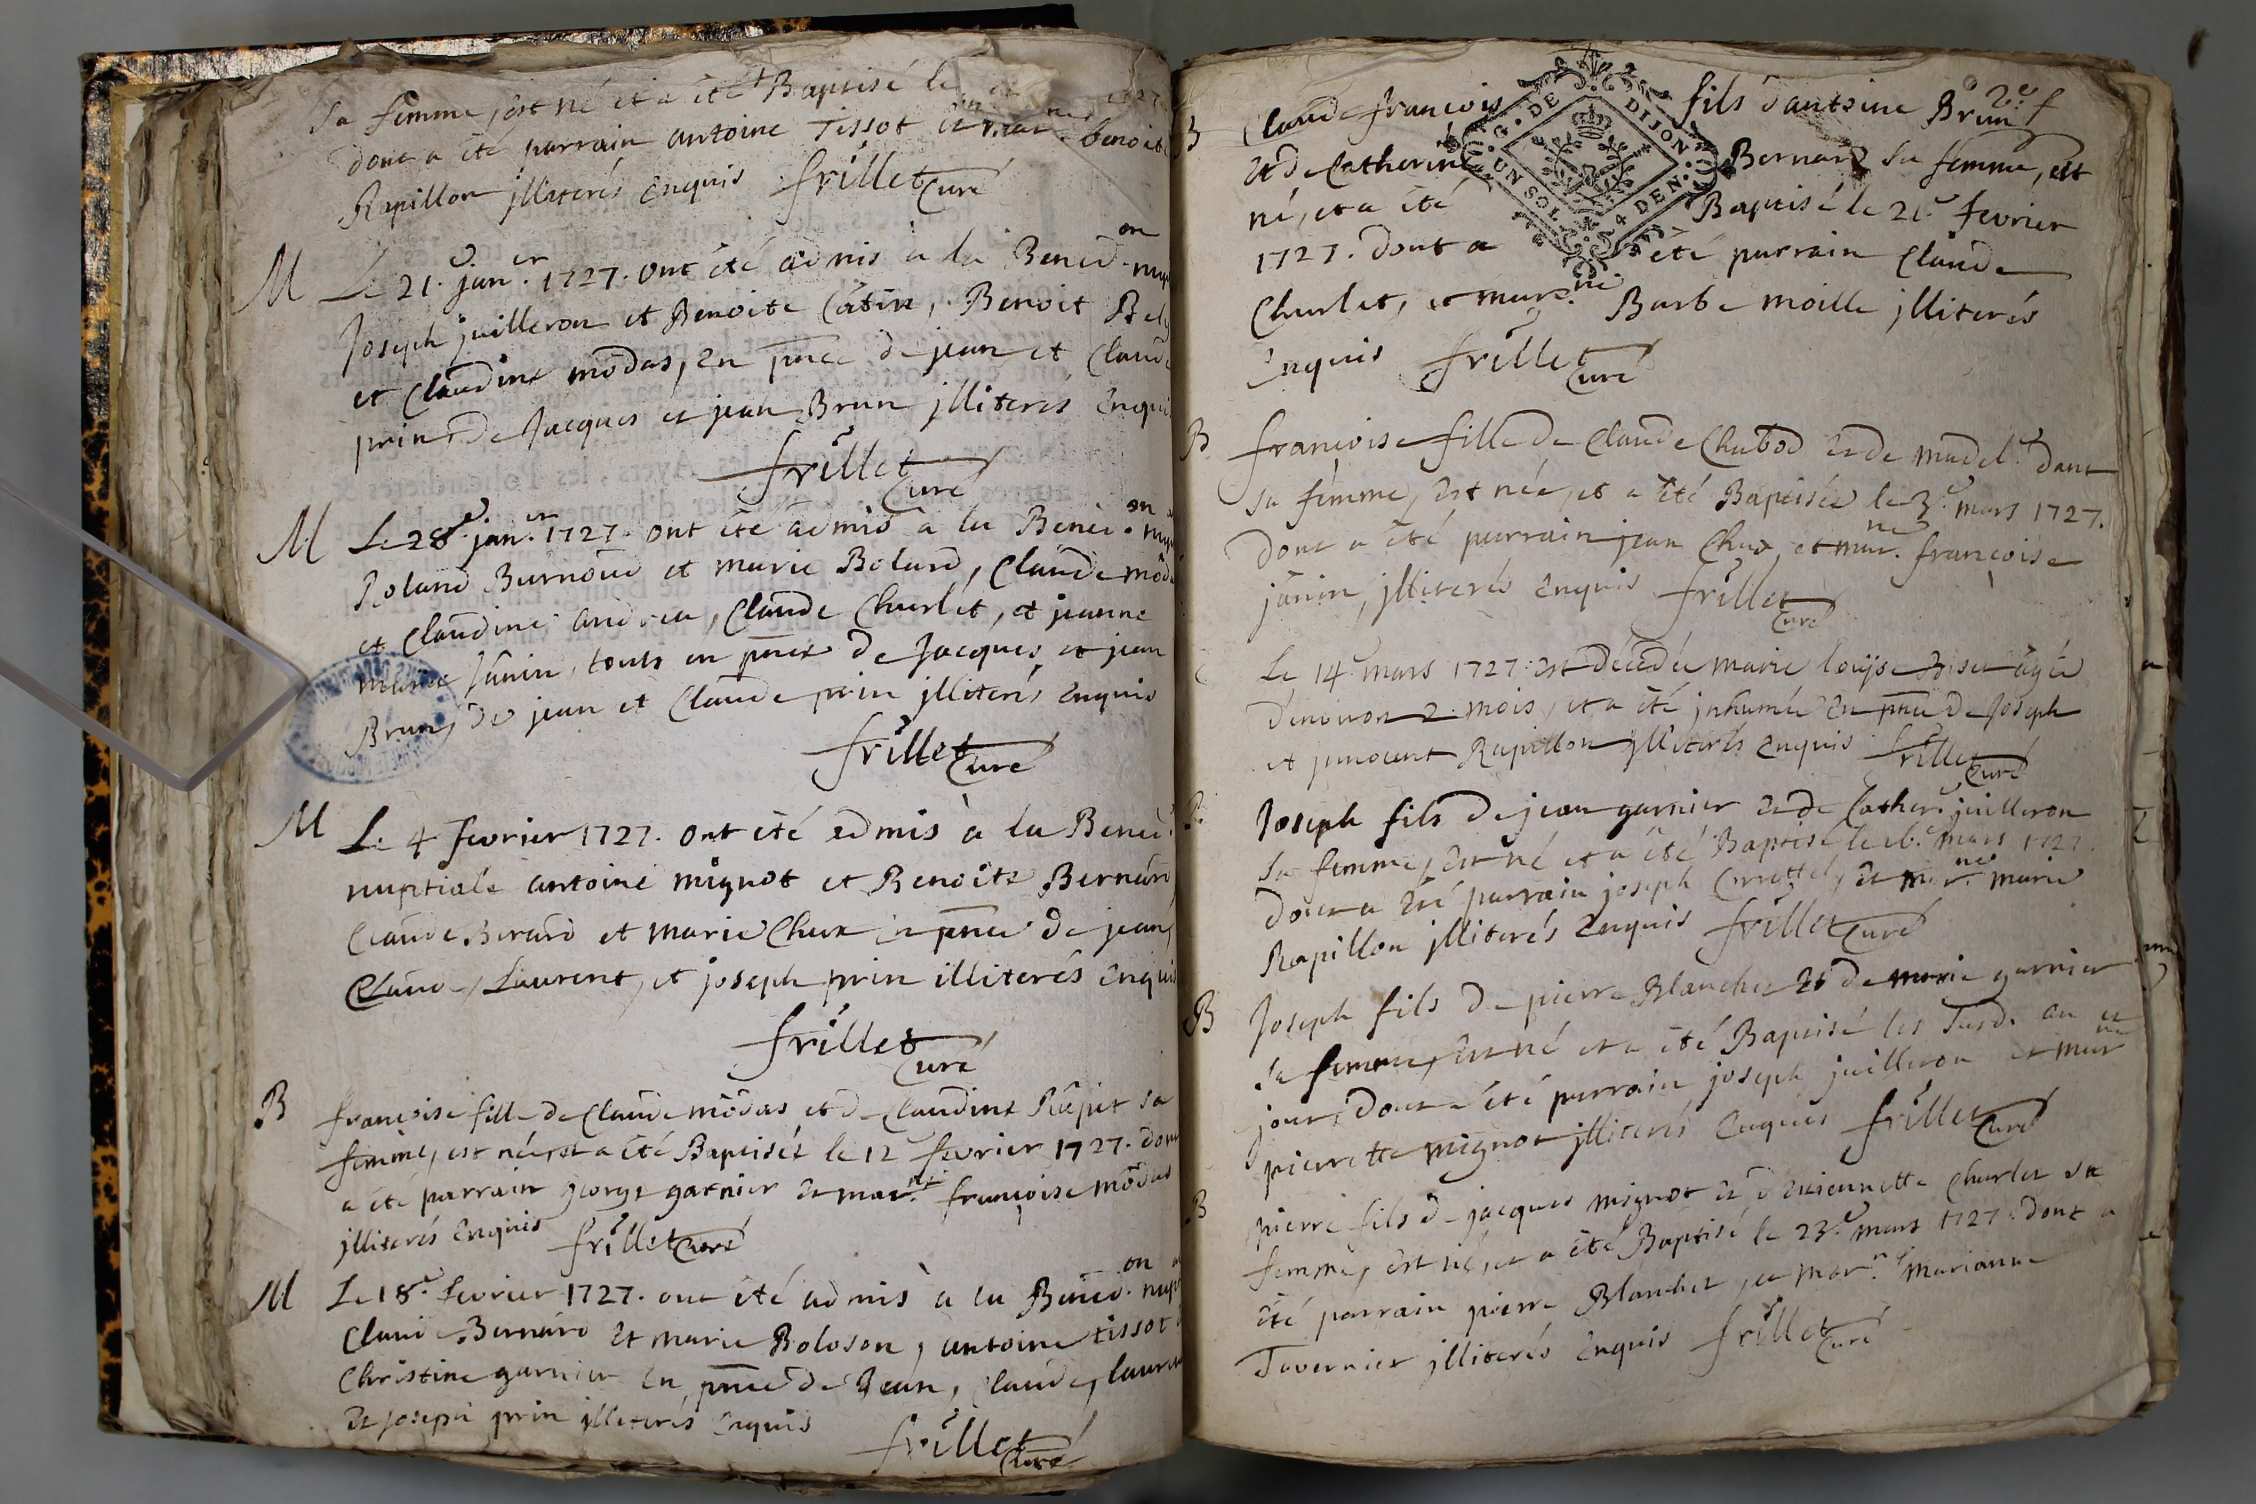 Sa femme, est né et a été Baptisé le
dont a été parrain antoine Tissot et mar.ne benoite
Rapillon jlliterés Enquis frillet Curé
M Le 21.e jan.er 1727. ont été admis à la Bened.on nup
Joseph juilleron et Benoite Catin, Benoit Bely
et Claudine modas, En pnce de jean et Claude
prin, de Jacques et jean Brun jlliterés Enquis
frillet Curé
M Le 28.e jan.er 1727. ont été admis à la Bened.on nup
Roland Burnoud et marie Bolard, Claude moda
et Claudine andrea, Claude Charlet, et jeanne
marie Janin, touts en pnce de Jacques et jean
Brun, de jean et Claude prin jlliterés Enquis
frillet Curé
M Le 4 fevrier 1727. ont été admis à la Bened.
nuptiale antoine mignot et Benoite Bernard
Claude Berard et marie Chux en pnce de jean,
Claude, Laurent, et joseph prin illiterés Enquis
frillet Curé
B françoise fille de Claude modas et de Claudine Rapet sa
femme, est née, et a été Baptisée le 12 fevrier 1727. dont
a été parrain george garnier et mar.ne françoise modas
jlliterés Enquis frillet Curé
M Le 18.e fevrier 1727. ont été admis à la Bened.on nup
Claude Bernard et marie Boloson, antoine tissot
Christine garnier En pnce de Jean, Claude, laurent
et joseph prin jlliterés Enquis
frillet Curé
2.e f
B Claude françois fils d'antoine Brun
et de Catherine Bernard sa femme, est
né, et a été Baptisé le 21.e fevrier
1727. dont a été parrain Claude
Charlet, et mar.ne Barbe moille jlliterés
Enquis frillet Curé
G. DE DIJON
UN SOL 4 DEN.
B françoise fille de Claude Chabod et de madel.e dans
sa femme, est née, et a été Baptisée le 3.e mars 1727.
dont a été parrain jean Chux, et mar.ne françoise
janin, jlliterés Enquis frillet Curé
Le 14.e mars 1727. est décédée marie louyse agée
d'environ 2. mois, et a été jnhumée En pnce de Joseph
et jnnocent Rapillon jlliterés Enquis frillet Curé
B Joseph fils de jean garnier et de Cather.e juilleron
sa femme, est né et a été Baptisé le 16.e mars 1727.
dont a été parrain joseph et mar.ne marie
Rapillon jlliterés Enquis frillet Curé
B Joseph fils de pierre Blanchet et de marie garnier
sa femme, est né et a été Baptisé les an et
jour, dont a été parrain joseph juilleron et mar.ne
pierrette mignot jlliterés Enquis frillet Curé
B pierre fils de jacques mignot et d'Etiennette Charlet sa
femme, est né, et a été Baptisé le 23.e mars 1727. dont a
été parrain pierre Blanchet, et mar.ne marianne
Tavernier jlliterés Enquis frillet Curé